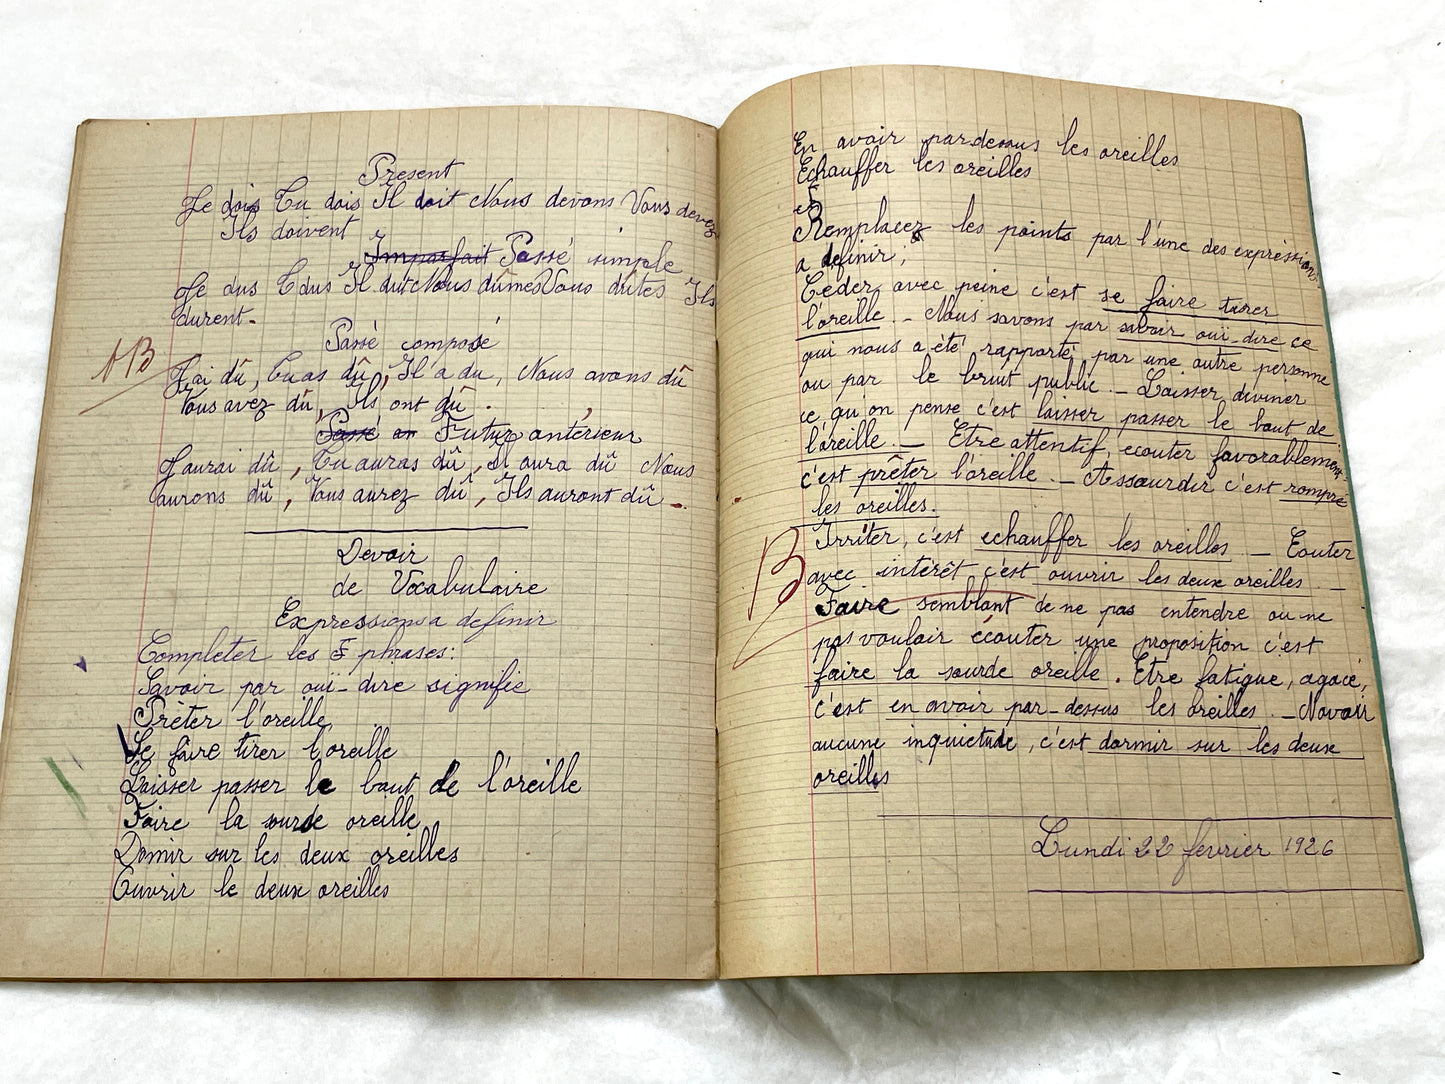 Present
Je dois Tu dois Il doit Nous devons Vous devez
Ils doivent
Imparfait Passé simple
Je dus Tdus Il dut Nous dûmes Vous dûtes Ils
durent.
Passé composé
AB
J'ai dû, Tu as dû, Il a du, Nous avons dû
Vous avez dû, Ils ont dû.
Passé an Futur antérieur
J'aurai dû, Tu auras dû, Il aura dû Nous
aurons dû, Vous aurez dû, Ils auront dû.
Devoir
de Vocabulaire
Expressions a definir
Completer les 5 phrases:
Savoir par ouï-dire signifie
Prèter l'oreille
Se faire tirer l'oreille
Laisser passer le bout de l'oreille
Faire la sourde oreille
Domir sur les deux oreilles
Ouvrir le deux oreilles
En avoir pardessus les oreilles
Echauffer les oreilles
Remplacez les points par l'une des expressions
a definir;
Ceder avec peine c'est se faire tirer
l'oreille. - Nous savons par savoir ouï-dire ce
qui nous a été rapporté par une autre personne
ou par le bruit public. - Laisser diviner
ce qu'on pense c'est laisser passer le bout de
l'oreille. - Etre attentif, ecouter favorablement
c'est prêter l'oreille - Assourdir c'est rompre
les oreilles.
B
Irriter, c'est echauffer les oreilles - Ecuter
avec intérêt c'est ouvrir les deux oreilles -
Faire semblant de ne pas entendre ou ne
pas vouloir écouter une proposition c'est
faire la sourde oreille. Etre fatigué, agacé,
c'est en avoir par-dessus les oreilles. - Navoir
aucune inquietude, c'est dormir sur les deux
oreilles
Lundi 22 fevrier 1926